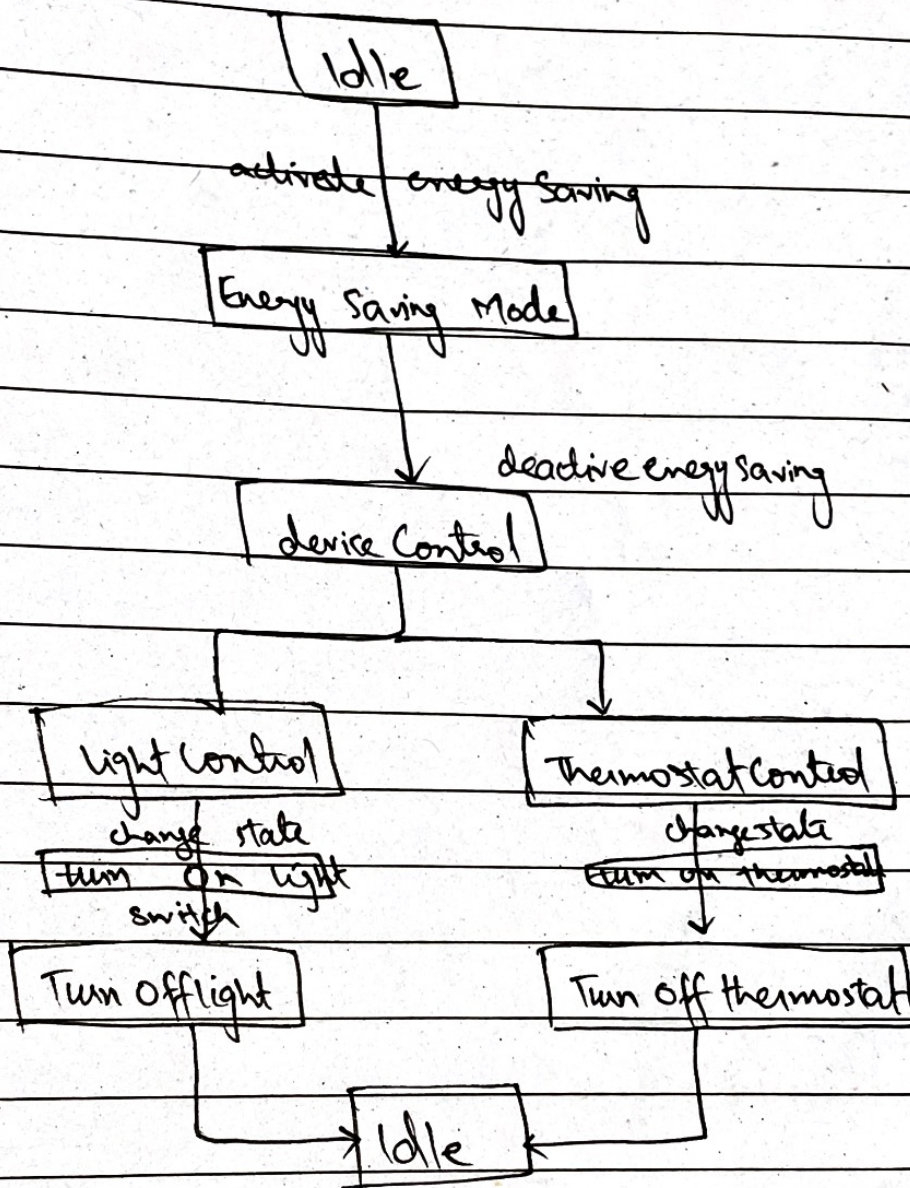 Idle
activate energy saving
Energy Saving Mode
deactive energy saving
device Control
Light Control
Thermostat Control
change state
change state
turn On light
turn on thermostat
switch
Turn Off light
Turn off thermostat
Idle